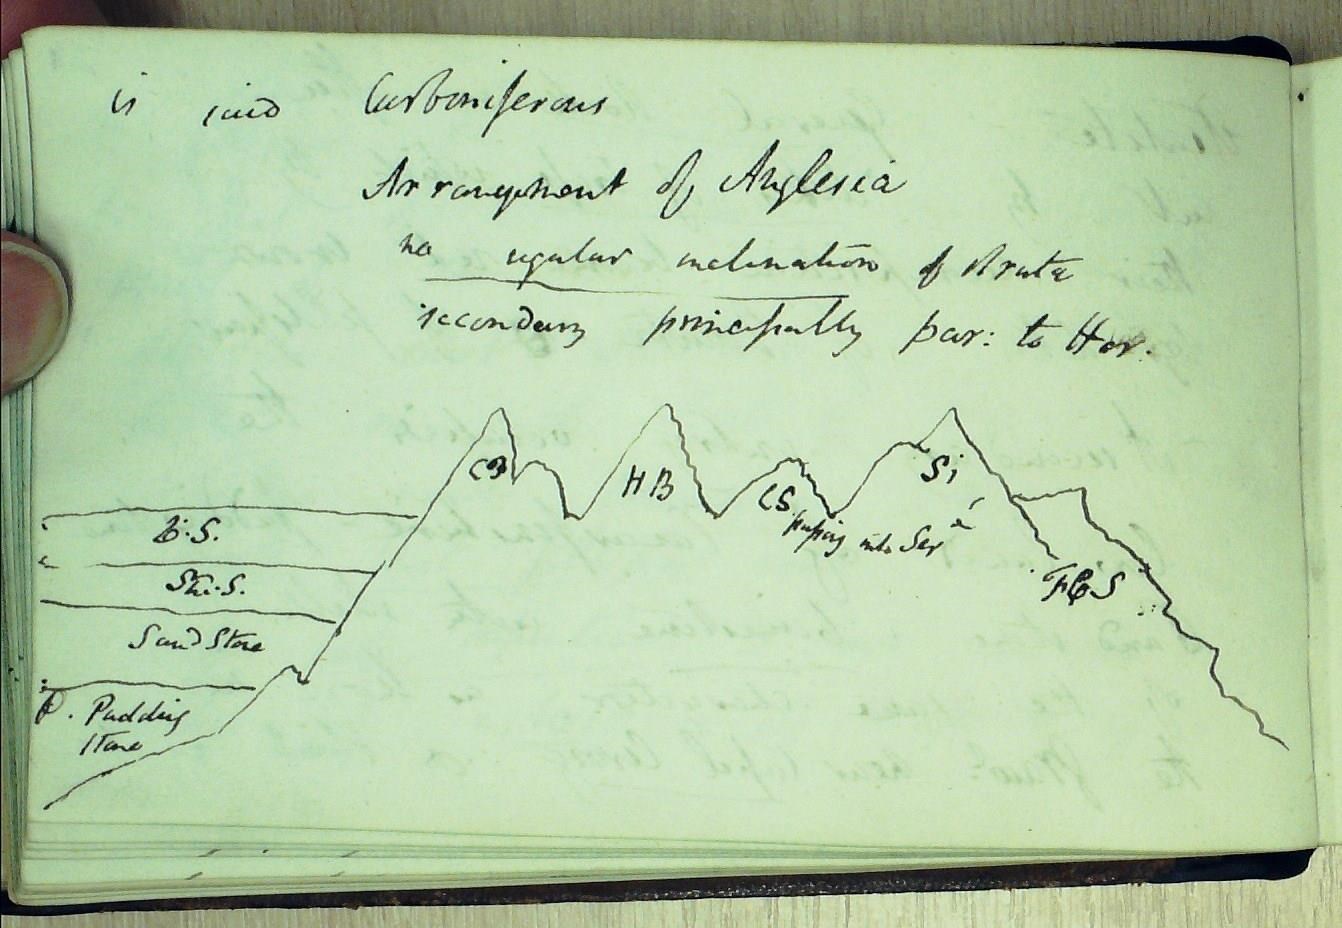 is said Carboniferous
Arrangement of Anglesia
no regular inclination of Strata
secondary principally par: to Hor.
CB
HB
CS
passing into Ser
Si
L.S.
Shi.S.
Sand Stone
P. Pudding
Stone